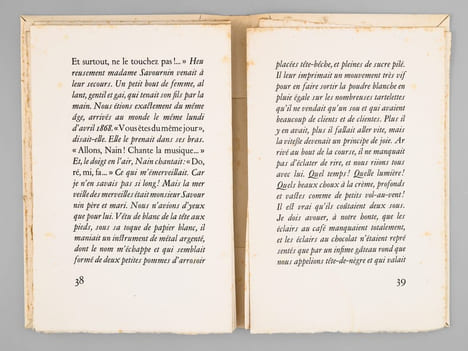 Et surtout, ne le touchez pas !... » Heu
reusement madame Savournin venait à
leur secours. Un petit bout de femme, al
lant, gentil et gai, qui tenait son fils par la
main. Nous étions exactement du même
âge, arrivés au monde le même lundi
d'avril 1868. « Vous êtes du même jour »,
disait-elle. Elle le prenait dans ses bras.
« Allons, Nain ! Chante la musique... »
Et, le doigt en l'air, Nain chantait : « Do,
ré, mi, fa... » Ce qui m'émerveillait. Car
je n'en savais pas si long ! Mais la mer
veille des merveilles était monsieur Savour
nin père et mari. Nous n'avions d'yeux
que pour lui. Vêtu de blanc de la tête aux
pieds, sous sa toque de papier blanc, il
maniait un instrument de métal argenté,
dont le nom m'échappe et qui semblait
formé de deux petites pommes d'arrosoir
38
placées tête-bêche, et pleines de sucre pilé.
Il leur imprimait un mouvement très vif
pour en faire sortir la poudre blanche en
pluie égale sur les nombreuses tartelettes
qu'il ne vendait qu'un sou et qui avaient
beaucoup de clients et de clientes. Plus il
y en avait, plus il fallait aller vite, mais
la vitesse devenait un principe de joie. Ar
rivé au bout de la course, il ne manquait
pas d'éclater de rire, et nous riions tous
avec lui. Quel temps ! Quelle lumière !
Quels beaux choux à la crème, profonds
et vastes comme de petits vol-au-vent !
Il est vrai qu'ils coûtaient deux sous.
Je dois avouer, à notre honte, que les
éclairs au café manquaient totalement,
et les éclairs au chocolat n'étaient repré
sentés que par un infime gâteau rond que
nous appelions tête-de-nègre et qui valait
39